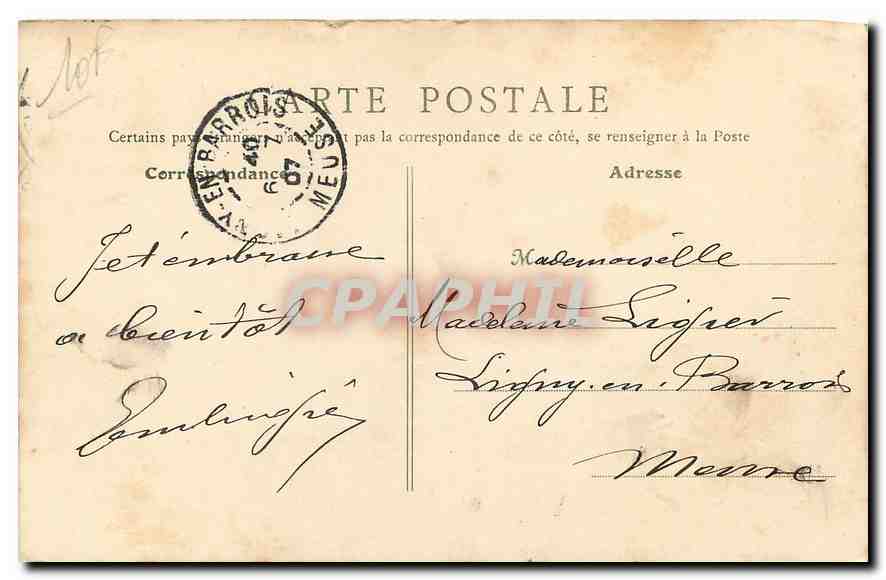 10f
CARTE POSTALE
Certains pays étrangers n'acceptant pas la correspondance de ce côté, se renseigner à la Poste
Correspondance
Adresse
Y-EN-BARROIS
MEUSE
07
Je t'embrasse
a bientôt
Mademoiselle
Madeleine Ligier
Ligny-en-Barrois
Meuse
CPAPHIL